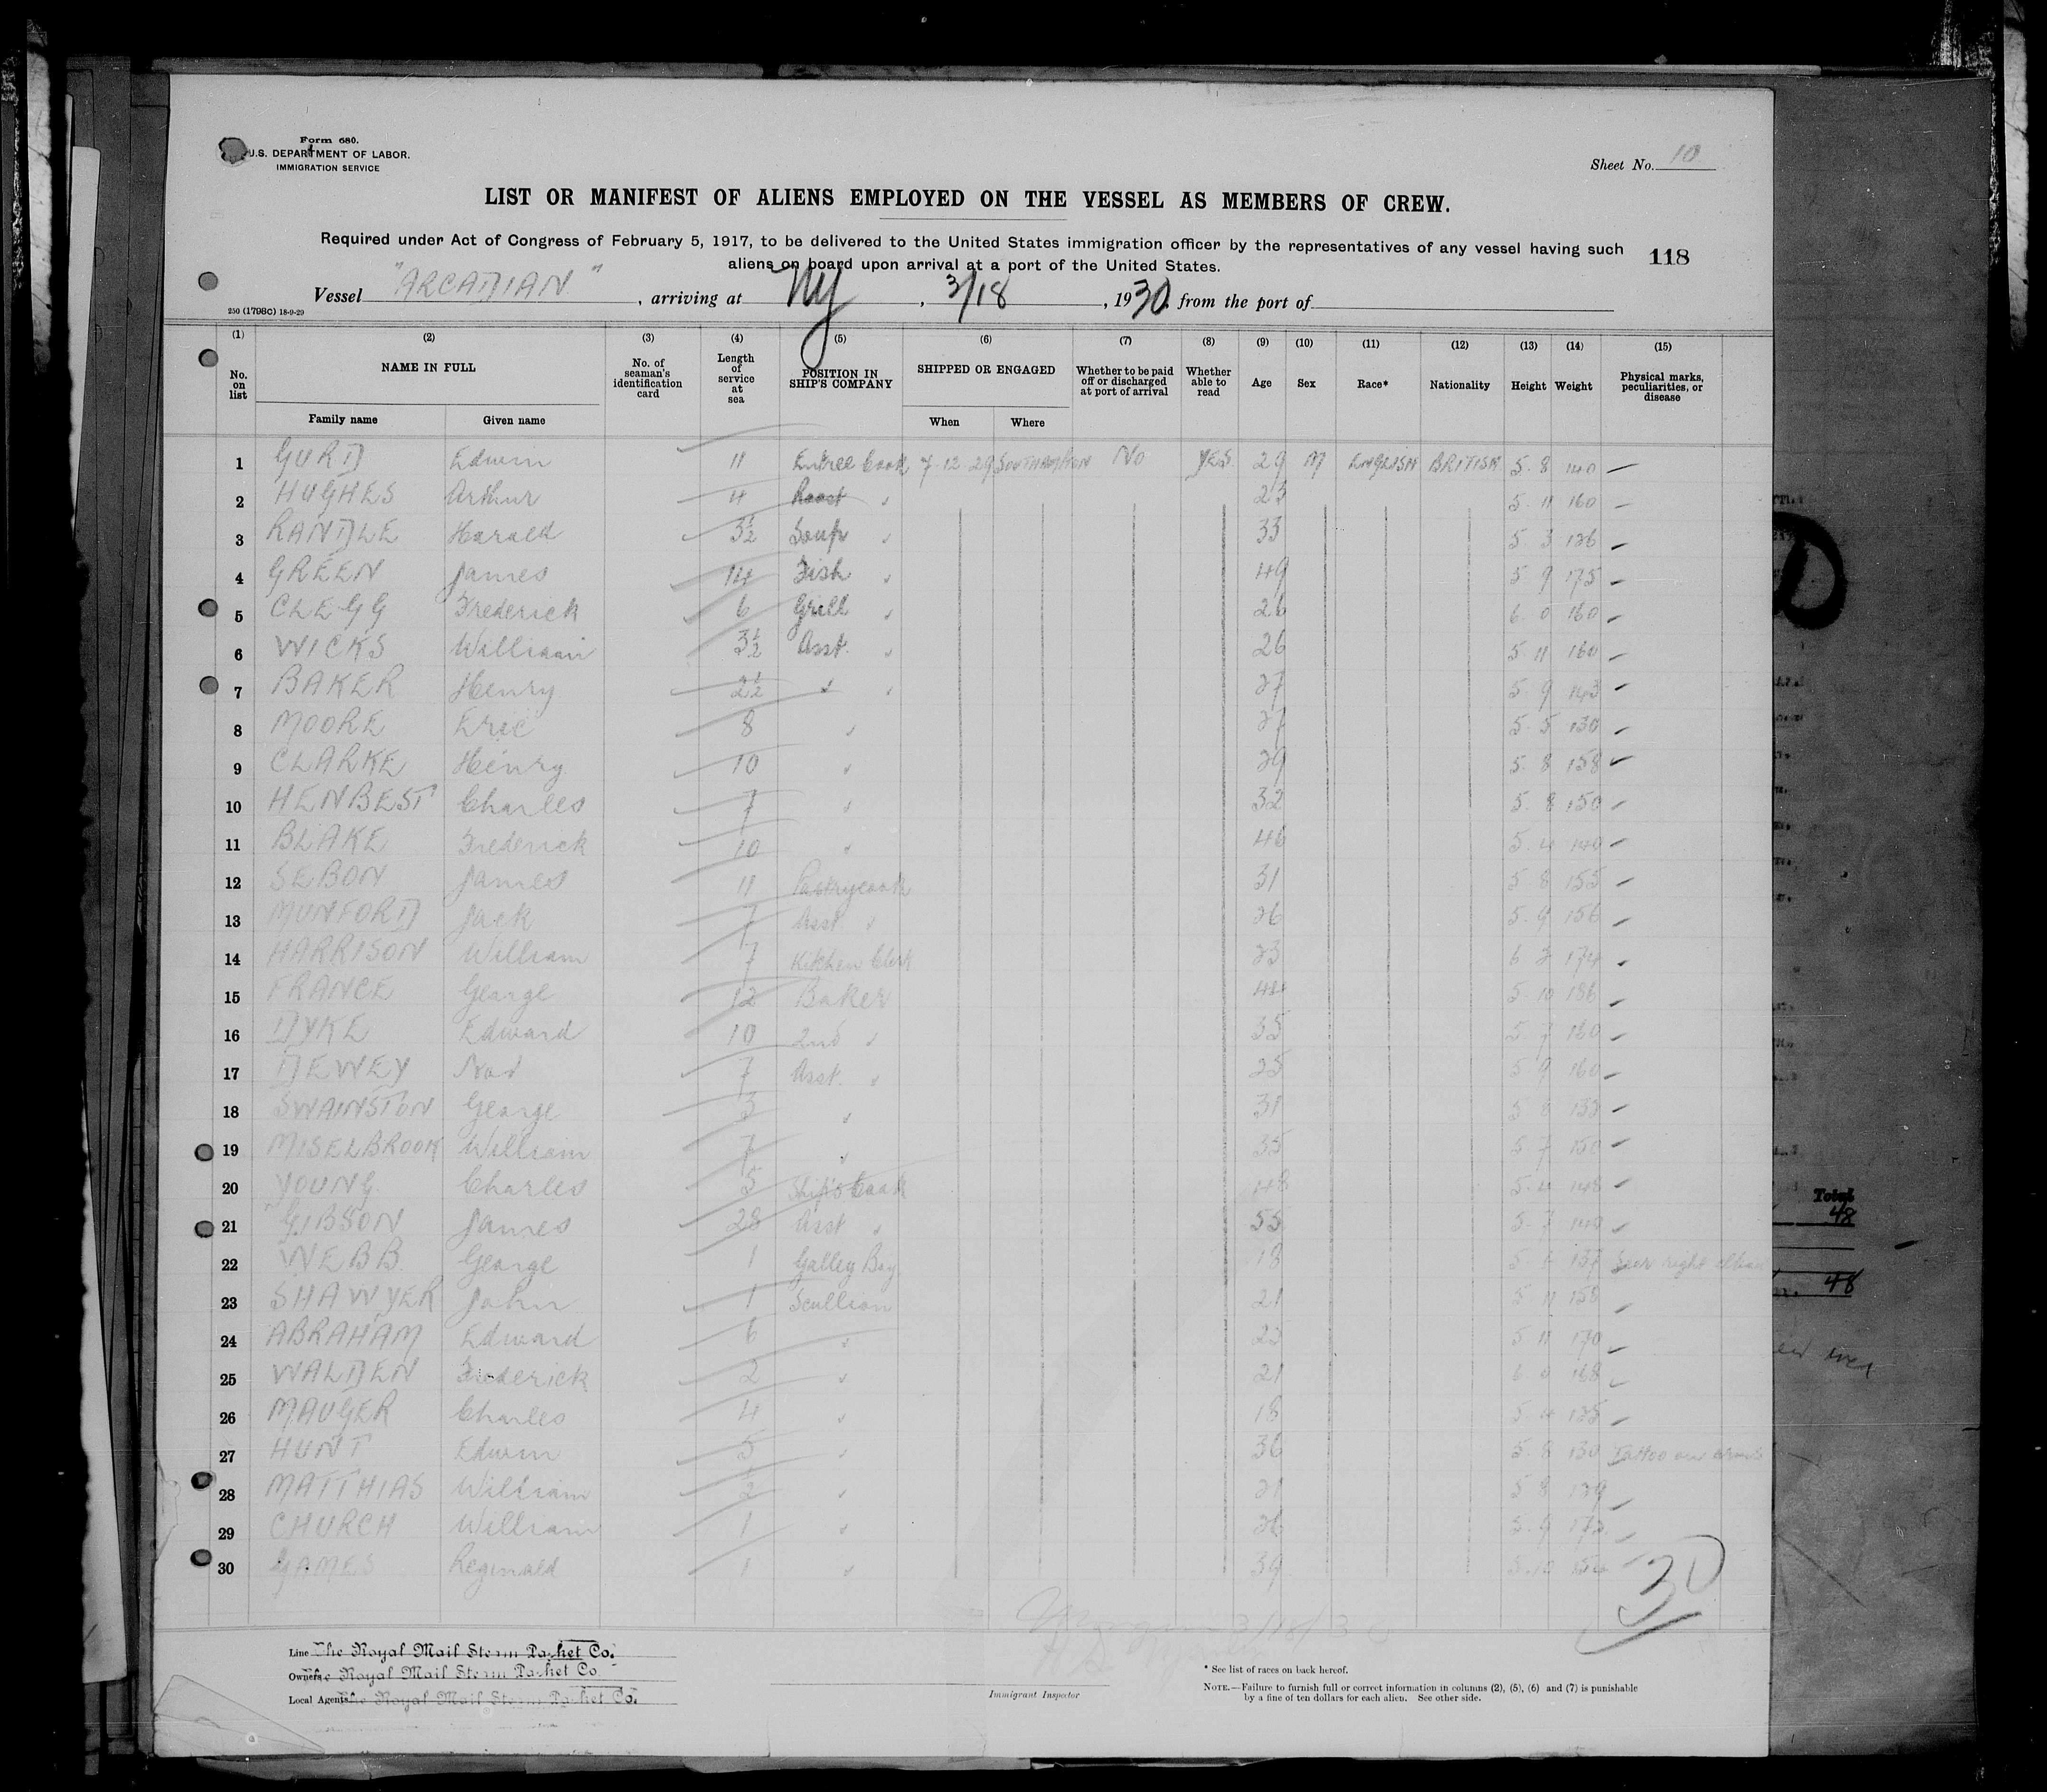 Form 680.
U.S. DEPARTMENT OF LABOR.
IMMIGRATION SERVICE
Sheet No. 10
LIST OR MANIFEST OF ALIENS EMPLOYED ON THE VESSEL AS MEMBERS OF CREW.
Required under Act of Congress of February 5, 1917, to be delivered to the United States immigration officer by the representatives of any vessel having such
aliens on board upon arrival at a port of the United States.
118
Vessel "ARCADIAN", arriving at NY, 3/18, 1930, from the port of
250 (1798C) 18-9-29
(1) (2) (3) (4) (5) (6) (7) (8) (9) (10) (11) (12) (13) (14) (15)
No. on list NAME IN FULL No. of seaman's identification card Length of service at sea POSITION IN SHIP'S COMPANY SHIPPED OR ENGAGED Whether to be paid off or discharged at port of arrival Whether able to read Age Sex Race* Nationality Height Weight Physical marks, peculiarities, or disease
Family name Given name When Where
1 GURD Edwin 11 Entree Cook 7-12-29 SOUTHAMPTON NO YES 29 M ENGLISH BRITISH 5. 8 140 —
2 HUGHES Arthur 4 Roast " 25 5. 11 160
3 RANDLE Harold 3½ Soup " 33 5. 3 126
4 GREEN James 14 Fish " 49 5 9 175
5 CLEGG Frederick 6 Grill " 26 6. 0 160
6 WICKS William 3½ Asst. " 26 5 11 160
7 BAKER Henry 2½ " " 27 5. 9 143
8 MOORE Eric 8 " 27 5. 5 130
9 CLARKE Henry 10 " 29 5. 8 158
10 HENBEST Charles 7 " 32 5. 8 150
11 BLAKE Frederick 10 " 46 5. 4 140
12 SEBON James 11 Pastrycook 31 5 8 155
13 MUNFORD Jack 7 Asst. " 26 5. 9 156
14 HARRISON William 7 Kitchen Clerk 23 6. 2 174
15 FRANCE George 12 Baker 5. 10
16 DYKE Edward 10 2nd " 35 5. 7
17 DEWEY 7 Asst. " 25 5 9 160
18 SWAINSTON George 3 " 31
19 MISELBROOK William 7 " 35 5 7 150
20 YOUNG Charles 5 Ship's Cook 48 5. 4 148
21 GIBSON James 28 Asst " 55 5. 7
22 WEBB George 1 Galley Boy 18 137 Scar right
23 SHAWYER John 1 Scullion 21 5 11 158
24 ABRAHAM Edward 6 " 5 11 170
25 WALDEN Frederick 2 " 21 168
26 MAUGER Charles 4 " 18 5. 4
27 HUNT Edwin 5 " 36 5. 8 130 Tattoo
28 MATTHIAS William ½ " 21 5 8
29 CHURCH William 1 " 26 5. 9
30 GAMES Reginald 1 " 39 5. 10
30
Line The Royal Mail Steam Packet Co.
Owners The Royal Mail Steam Packet Co.
Local Agents The Royal Mail Steam Packet Co.
Immigrant Inspector
* See list of races on back hereof.
NOTE.—Failure to furnish full or correct information in columns (2), (5), (6) and (7) is punishable
by a fine of ten dollars for each alien. See other side.
Total
48
48